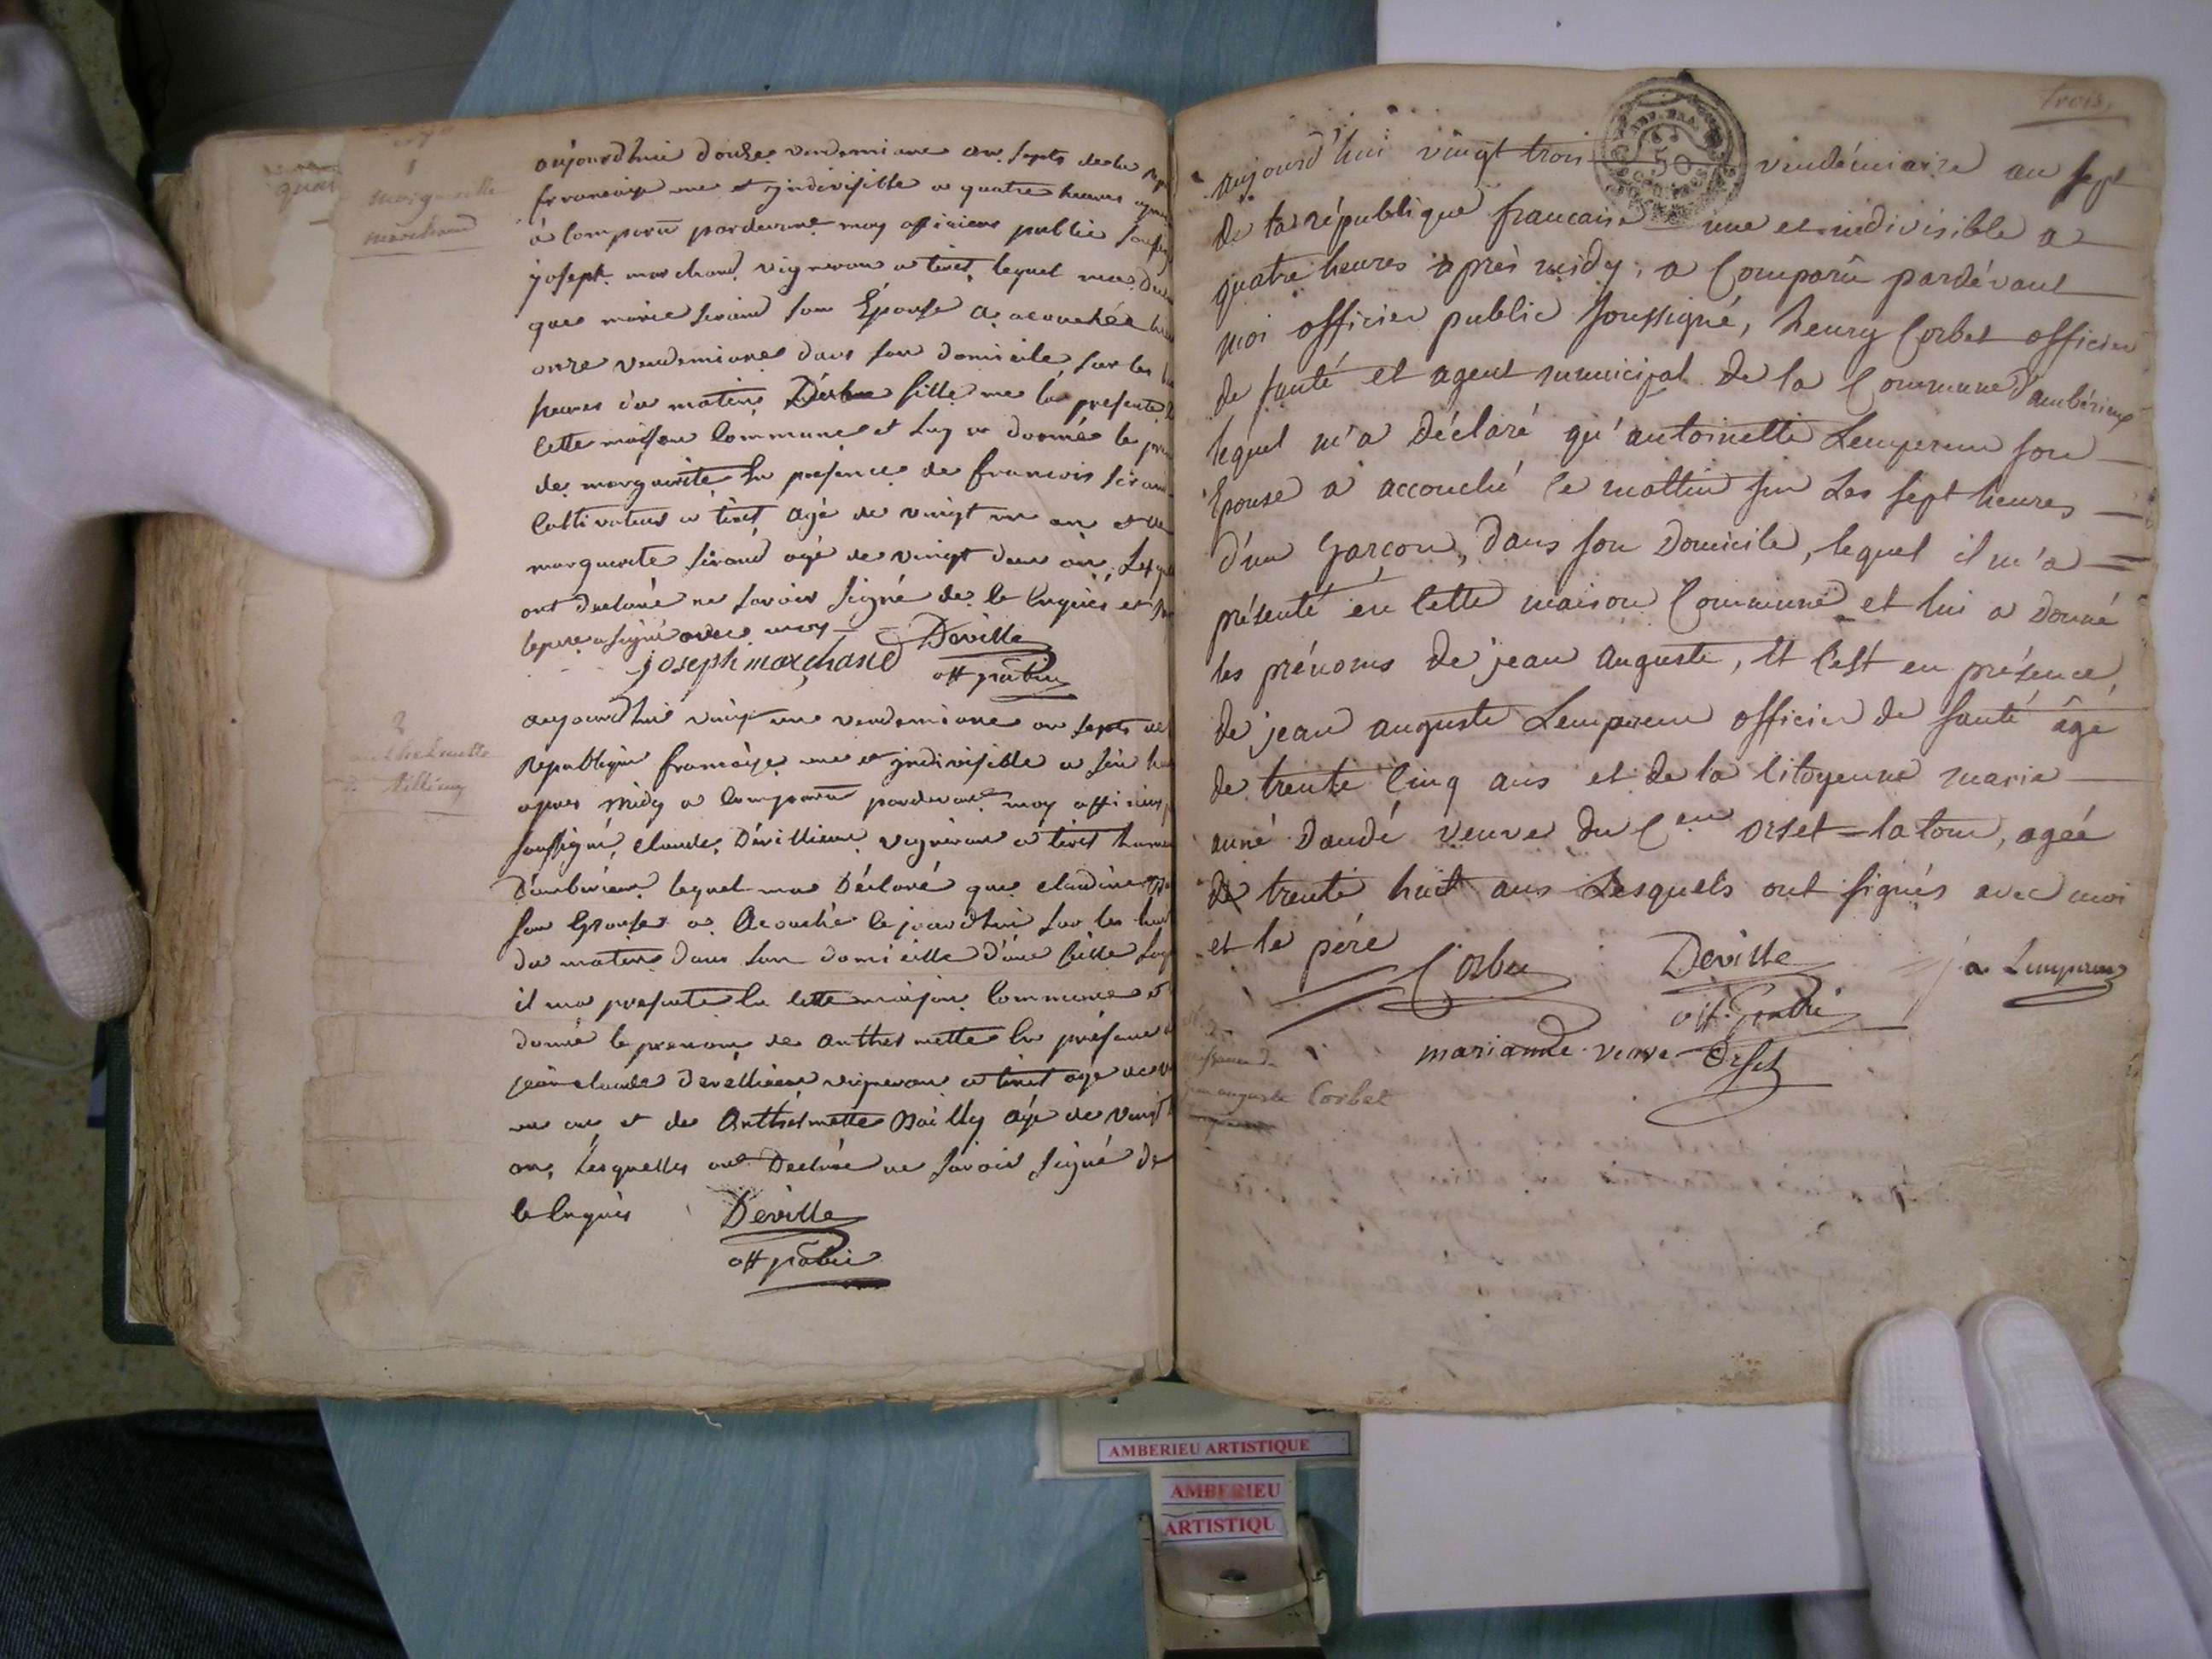 1
marguerite
marchand
aujourdhuie douze vendemiaire an septs de la
francaise une et jndivisible a quatre heures
à comparu pardevant moy officiers public
joseph marchand vigneron a tiret lequel ma
que marie sirand son Épouse a acouchée
onze vendemiaires dans son domicile sur les
heures du matins fille me la presente
cette maison commune et luy a donné le
de marguerite En presence de francois
cultivateur a tiret agé de vingt un an et de
marguerite sirand agé de vingt deux an
ont declaré ne savoir signé de ce Enquis et
le pere a signé avec moy Deville
joseph marchand off public
2
aujourdhui vingt une vendemiaire an septs
Republique francaise une et jndivisible a six
apres midy a comparu pardevant moy officier
soussigné, claude Dévillieme vigneron a tiret
D'amberieux lequel ma Déclaré que claudine
son Epouse a Acouchée le jourdhui sur les
du matins dans son domicille d'une fille
il ma presente En cette maison commune
donné le prenom de anthelmette En présence
jean claude vigneron a tiret age
un an et de Anthelmette Bailly age de vingt
an, Lesquelles ont Declaré ne savoir signé de
ce Enquis Deville
off public
trois,
REP. FRA.
50
Aujourd'hui vingt trois vendémiaire an sept
de la république francaise une et indivisible a
quatre heures après midy, a Comparû pardévant
moi officier public soussigné, henry Corbet officier
de santé et agent municipal de la Commune d'ambérieux
lequel m'a Déclaré qu'antoinette Lempereur son
Epouse a accouché ce mattin sur Les sept heures
d'un Garçon, dans son Domicile, lequel il m'a
présenté en Cette maison Commune et lui a Donné
les prénoms de jean Auguste, et C'est en présence
de jean auguste Lempereur officier de santé âgé
de trente cinq ans et de la Citoyenne marie
anne Daudé veuve du Cen orset=latour, agée
de trente huit ans Lesquels ont signés avec moi
et le père
Corbet Deville j a Lempereur
off. Public
marianne veuve Orset
naissance de
jean auguste Corbet
AMBERIEU ARTISTIQUE
AMBERIEU
ARTISTIQU